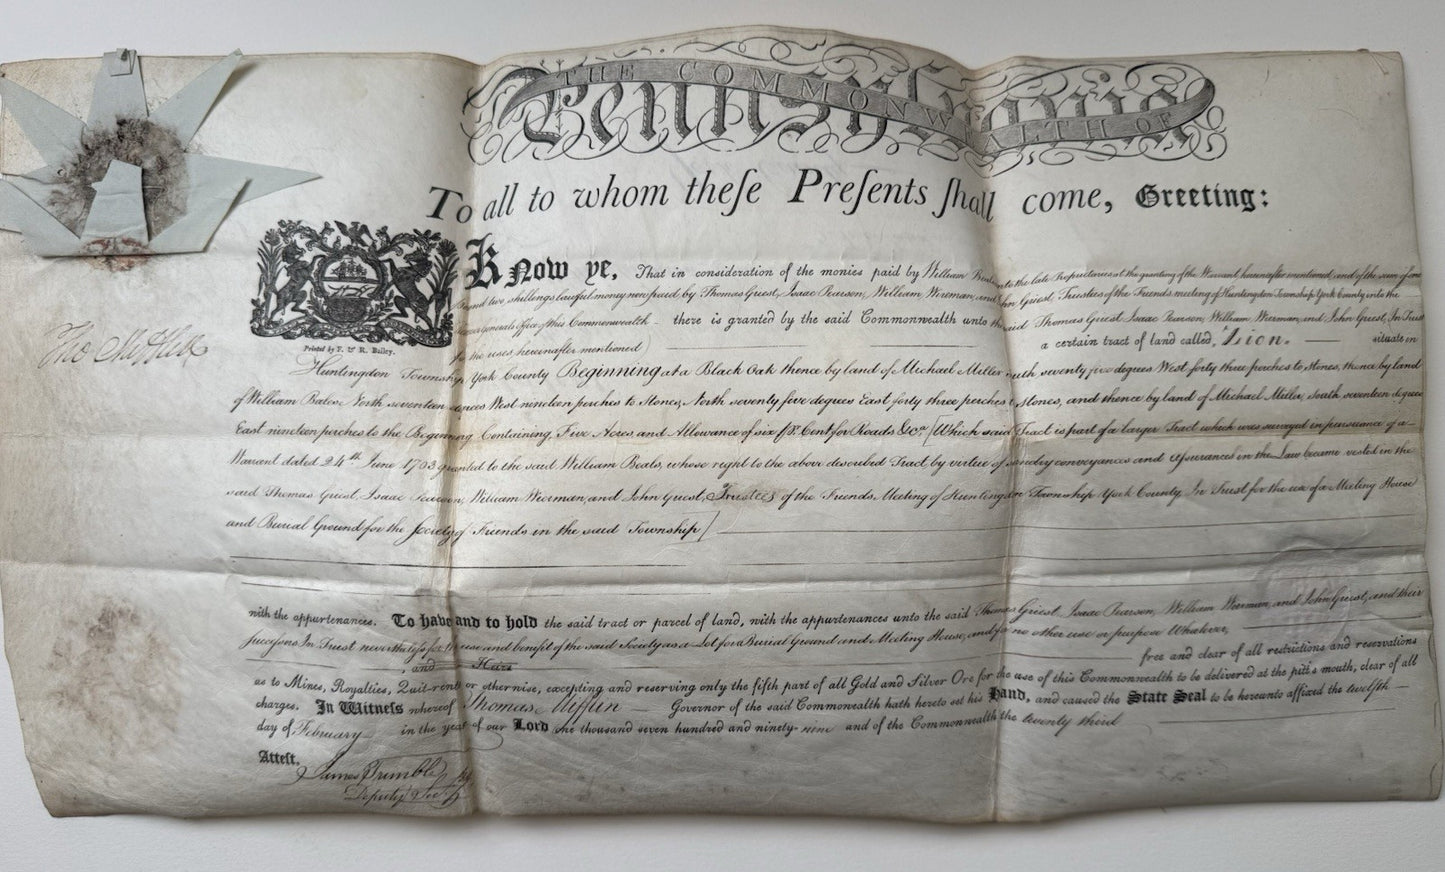 THE COMMONWEALTH OF
Pennsylvania
To all to whom theſe Preſents ſhall come, Greeting:
Know ye, That in consideration of the monies paid by William Beals to the late Proprietaries at the granting of the Warrant hereinafter mentioned, and of the sum of one
Pound two shillings lawful money now paid by Thomas Griest, Isaac Pearson, William Wierman, and John Griest, Trustees of the Friends meeting of Huntingdon Township York County into the
Generals Office of this Commonwealth there is granted by the said Commonwealth unto the said Thomas Griest Isaac Pearson, William Wierman, and John Griest, In Trust
for the uses hereinafter mentioned) a certain tract of land called, "Lion. situate in
Printed by F. & R. Bailey.
Tho Mifflin
Huntingdon Township York County Beginning at a Black Oak thence by land of Michael Miller South seventy five degrees West forty three perches to Stones, thence by land
of William Bales North seventeen degrees West nineteen perches to Stones, North seventy five degrees East forty three perches to Stones, and thence by land of Michael Miller, South seventeen degrees
East nineteen perches to the Beginning Containing Five Acres, and Allowance of six P. Cent for Roads &c.a [Which said Tract is part of a larger Tract which was surveyed in pursuance of a
Warrant dated 24th June 1763 granted to the said William Beals, whose right to the above described Tract, by virtue of sundry conveyances and Assurances in the Law became vested in the
said Thomas Griest, Isaac Pearson, William Wierman, and John Griest, Trustees of the Friends Meeting of Huntingdon Township York County, In Trust for the use of a Meeting House
and Burial Ground for the Society of Friends in the said Township]
with the appurtenances. To have and to hold the said tract or parcel of land, with the appurtenances unto the said Thomas Griest Isaac Pearson, William Wierman, and John Griest, and their
successors In Trust nevertheless for the use and benefit of the said Society as a Lot for a Burial Ground and Meeting House, and for no other use or purpose Whatever,
and Heirs free and clear of all restrictions and reservations
as to Mines, Royalties, Quit-rents or otherwise, excepting and reserving only the fifth part of all Gold and Silver Ore for the use of this Commonwealth to be delivered at the pitt's mouth, clear of all
charges. In Witneſs whereof Thomas Mifflin Governor of the said Commonwealth hath hereto set his Hand, and caused the State Seal to be hereunto affixed the twelfth
day of February in the year of our Lord one thousand seven hundred and ninety-nine and of the Commonwealth the twenty third
Atteſt.
James Trimble
Deputy Secy